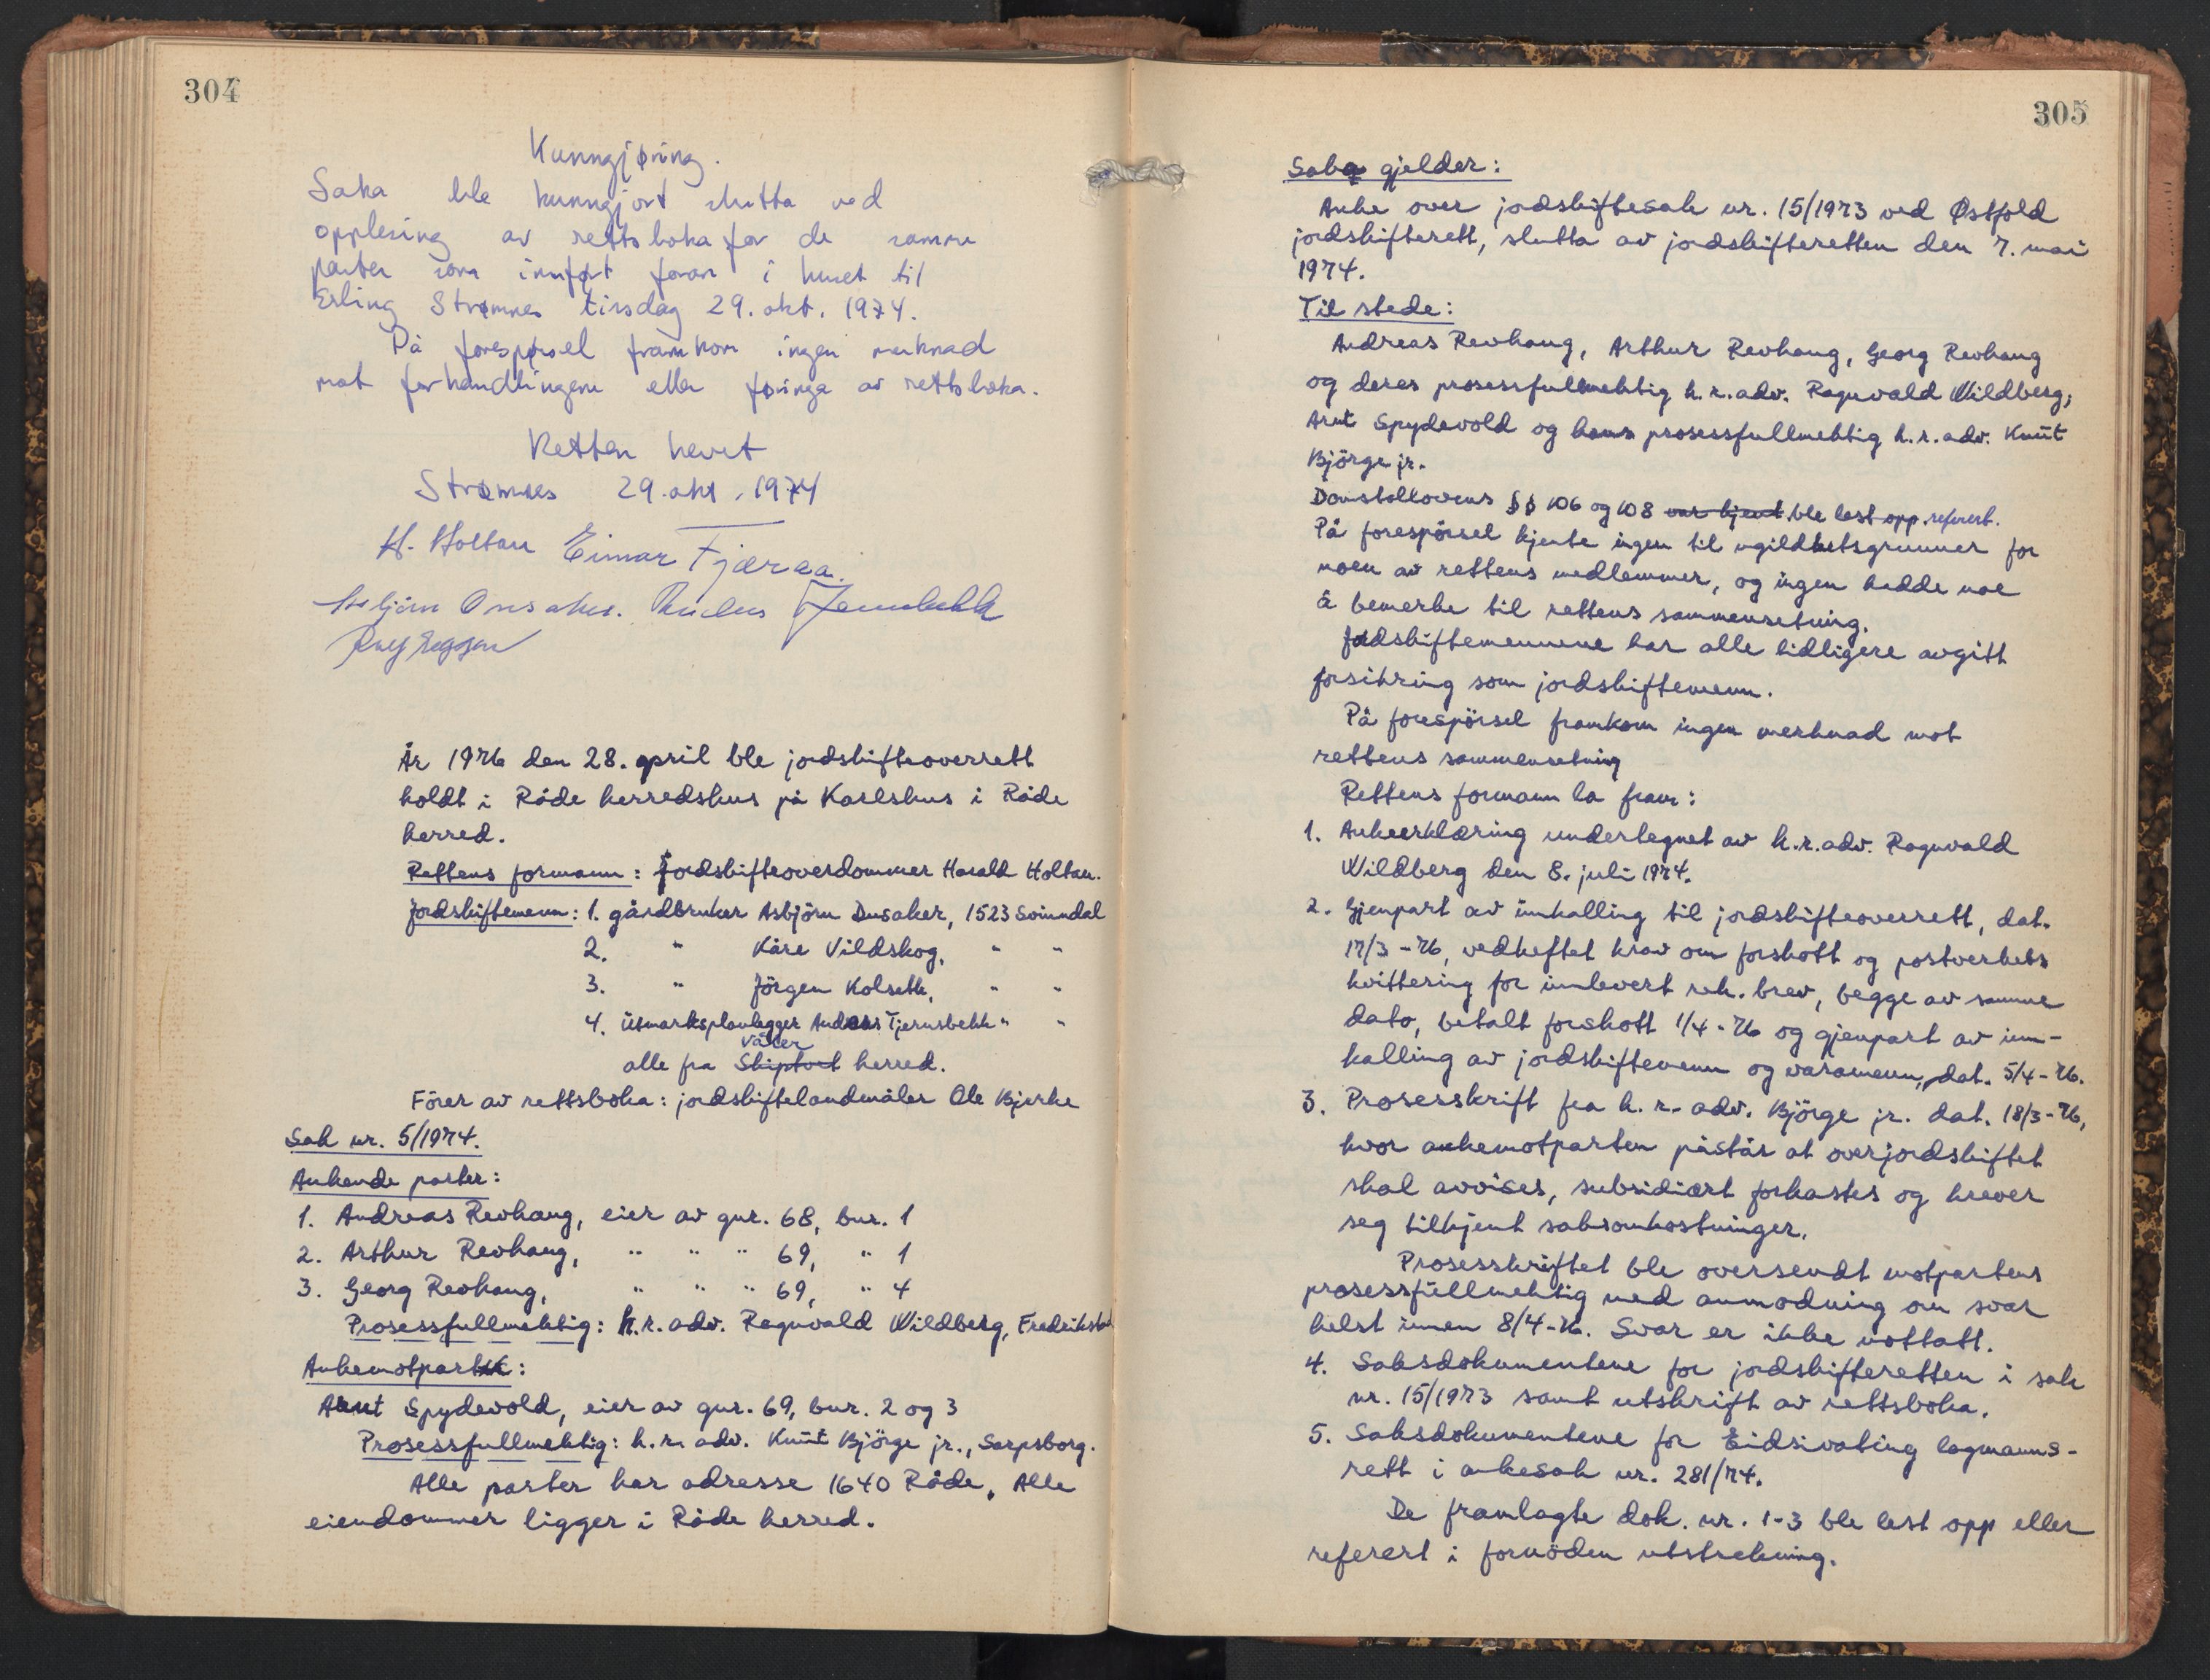 304
Kunngjøring.
Saka ble kunngjort slutta ved
opplesing av rettsboka for de samme
parter som innført foran i huset til
Erling Strømnes tirsdag 29. okt. 1974.
På forespørsel framkom ingen merknad
mot forhandlingene eller føringa av rettsboka.
Retten hevet
Strømnes 29. okt. 1974
H. Holtan Einar Fjæraa.
Asbjørn Dusaker.
År 1976 den 28. april ble jordskifteoverrett
holdt i Råde herredshus på Karlshus i Råde
herred.
Rettens formann: Jordskifteoverdommer Harald Holtan.
Jordskiftemenn: 1. gårdbruker Asbjörn Dusaker, 1523 Svinndal
2. " Kåre Vildskog, " "
3. " Jörgen Kolseth, " "
4. utmarksplanlegger Anders Tjernsbekk " "
Våler
alle fra Skiptvet herred.
Förer av rettsboka: jordskiftelandmåler Ole Bjerke
Sak nr. 5/1974.
Ankende parter:
1. Andreas Revhaug, eier av gnr. 68, bnr. 1
2. Arthur Revhaug, " " " 69, " 1
3. Georg Revhaug, " " " 69, " 4
Prosessfullmektig: h.r.adv. Ragnvald Wildberg, Fredrikstad
Ankemotpart:
Arnt Spydevold, eier av gnr. 69, bnr. 2 og 3
Prosessfullmektig: h.r. adv. Knut Björge jr., Sarpsborg.
Alle parter har adresse 1640 Råde. Alle
eiendommer ligger i Råde herred.
305
Saka gjelder:
Anke over jordskiftesak nr. 15/1973 ved Østfold
jordskifterett, slutta av jordskifteretten den 7. mai
1974.
Til stede:
Andreas Revhaug, Arthur Revhaug, Georg Revhaug
og deres prosessfullmektig h.r.adv. Ragnvald Wildberg,
Arnt Spydevold og hans prosessfullmektig h.r.adv. Knut
Björge jr.
Domstollovens §§ 106 og 108 var kjent ble lest opp. referert.
På forespörsel kjente ingen til ugildhetsgrunner for
noen av rettens medlemmer, og ingen hadde noe
å bemerke til rettens sammensetning.
Jordskiftemennene har alle tidligere avgitt
forsikring som jordskiftemenn.
På forespörsel framkom ingen merknad mot
rettens sammensetning
Rettens formann la fram:
1. Ankeerklæring undertegnet av h.r.adv. Ragnvald
Wildberg den 8. juli 1974.
2. Gjenpart av innkalling til jordskifteoverrett, dat.
17/3-76, vedheftet krav om forskott og postverkets
kvittering for innlevert rek. brev, begge av samme
dato, betalt forskott 1/4-76 og gjenpart av inn-
kalling av jordskiftemenn og varamenn, dat. 5/4-76.
3. Prosesskrift fra h.r. adv. Björge jr. dat. 18/3-76,
hvor ankemotparten påstår at overjordskiftet
skal avvises, subsidiært forkastes og krever
seg tilkjent saksomkostninger.
Prosesskriftet ble oversendt motpartens
prosessfullmektig med anmodning om svar
helst innen 8/4-76. Svar er ikke mottatt.
4. Saksdokumentene for jordskifteretten i sak
nr. 15/1973 samt utskrift av rettsboka.
5. Saksdokumentene for Eidsivating lagmanns-
rett i ankesak nr. 281/74.
De framlagte dok. nr. 1-3 ble lest opp eller
referert i fornöden utstrekning.